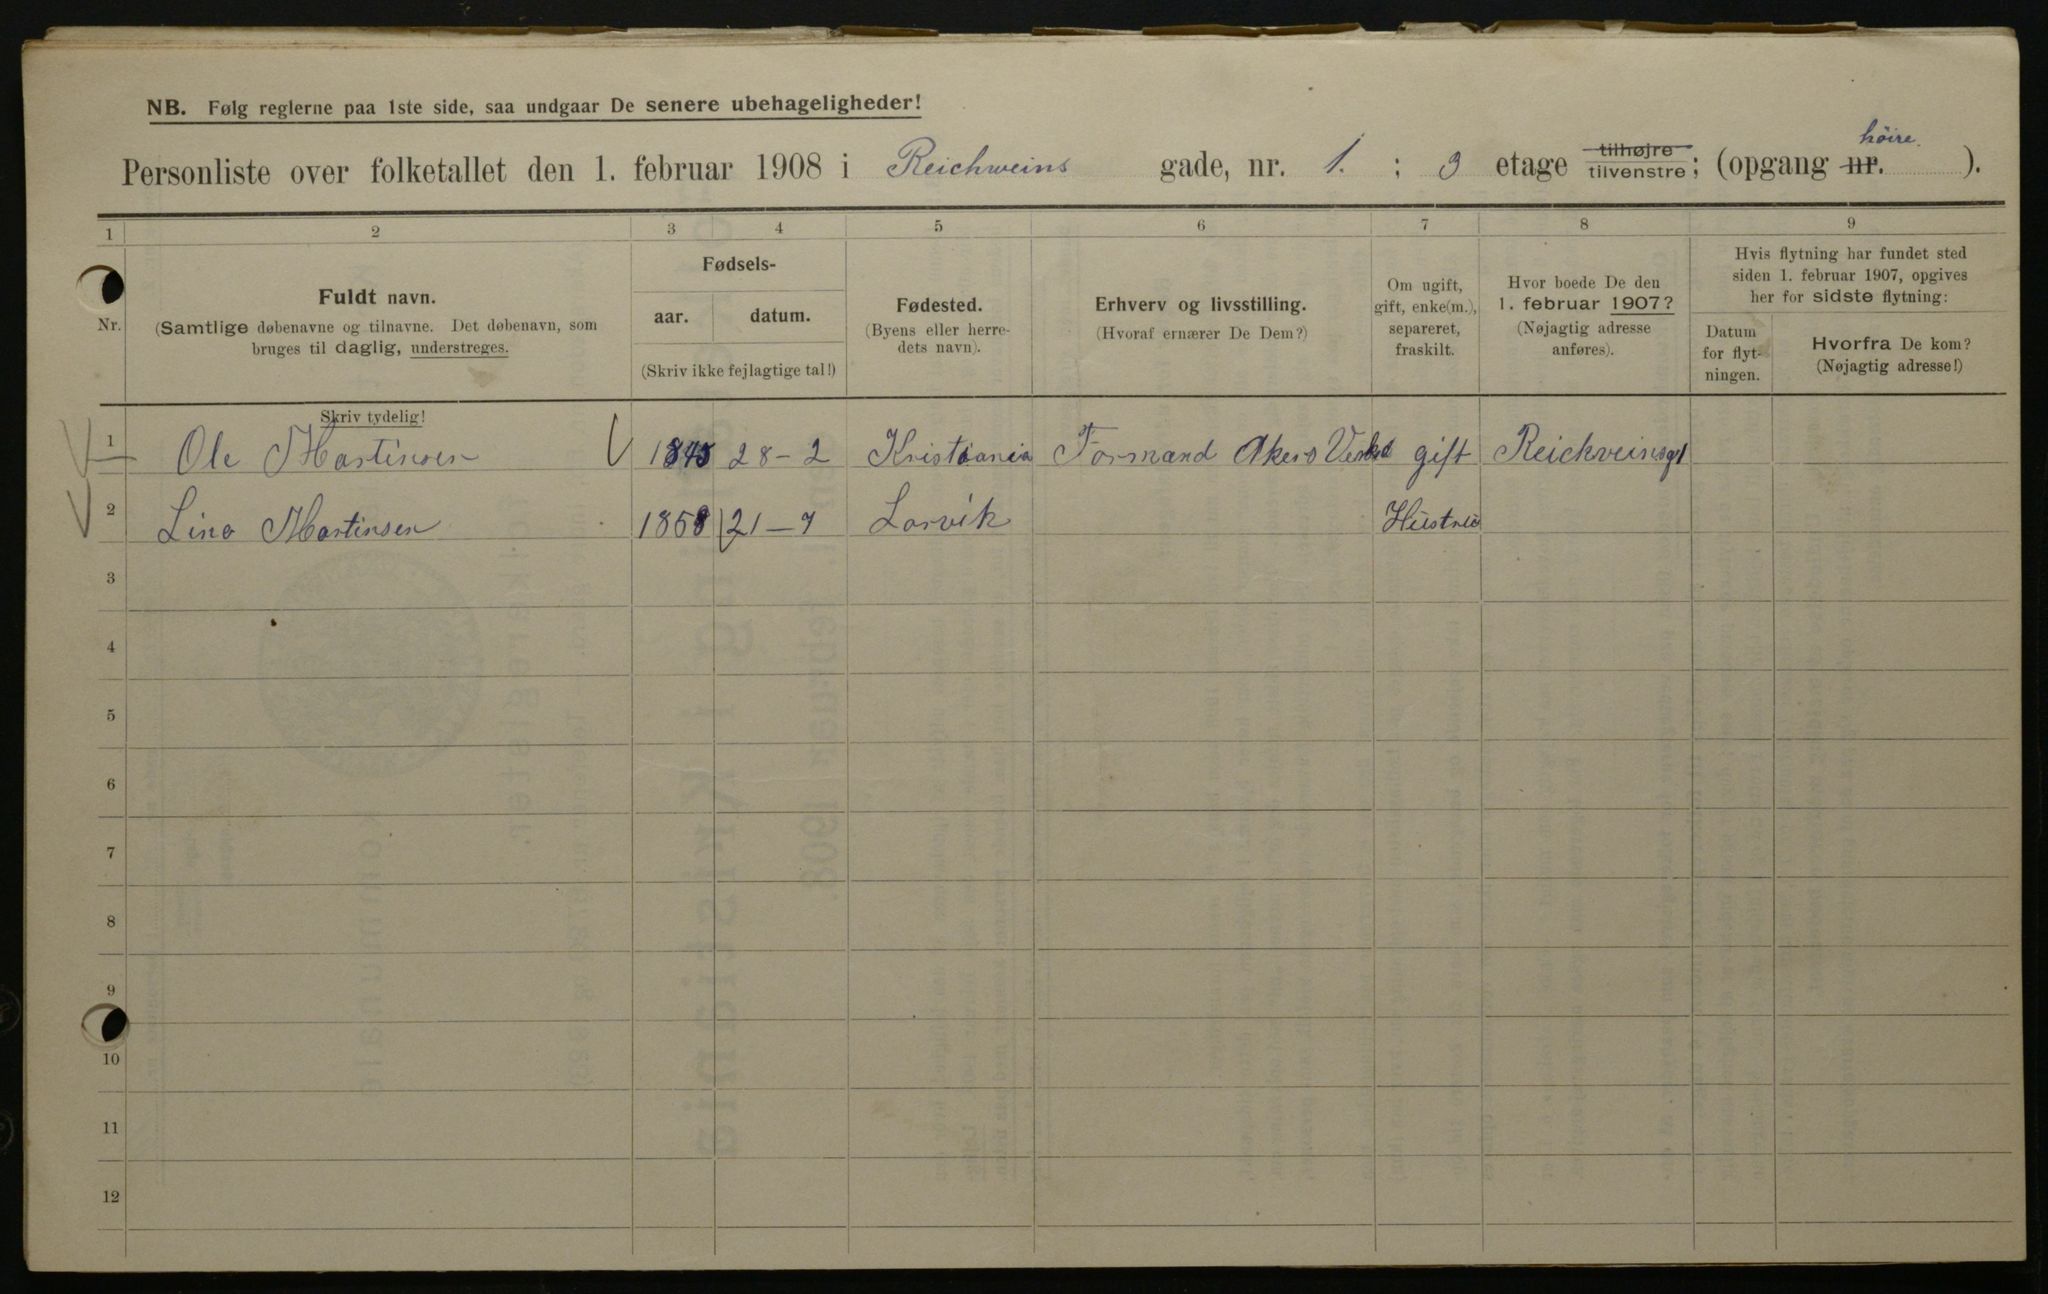 NB. Følg reglerne paa 1ste side, saa undgaar De senere ubehageligheder!
høire.
Personliste over folketallet den 1. februar 1908 i Reichweins gade, nr. 1. ; 3 etage tilhøjre tilvenstre; (opgang nr. ).
1 2 3 4 5 6 7 8 9
Nr.
Fuldt navn.
(Samtlige døbenavne og tilnavne. Det døbenavn, som
bruges til daglig, understreges.
Skriv tydelig!
Fødsels-
aar. datum.
(Skriv ikke fejlagtige tal!)
Fødested.
(Byens eller herre-
dets navn).
Erhverv og livsstilling.
(Hvoraf ernærer De Dem?)
Om ugift,
gift, enke(m.),
separeret,
fraskilt.
Hvor boede De den
1. februar 1907?
(Nøjagtig adresse
anføres).
Hvis flytning har fundet sted
siden 1. februar 1907, opgives
her for sidste flytning:
Datum
for flyt-
ningen.
Hvorfra De kom?
(Nøjagtig adresse!)
1 Ole Martinsen 1845 28-2 Kristiania Formand Akers gift Reichveinsg1
2 Lina Martinsen 1858 21-7 Larvik Hustru
3
4
5
6
7
8
9
10
11
12